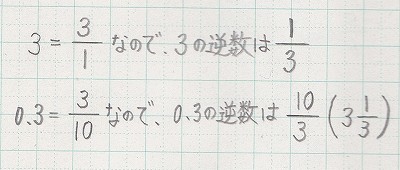 3 = 3/1 なので、3の逆数は 1/3
0.3 = 3/10 なので、0.3の逆数は 10/3 (3 1/3)